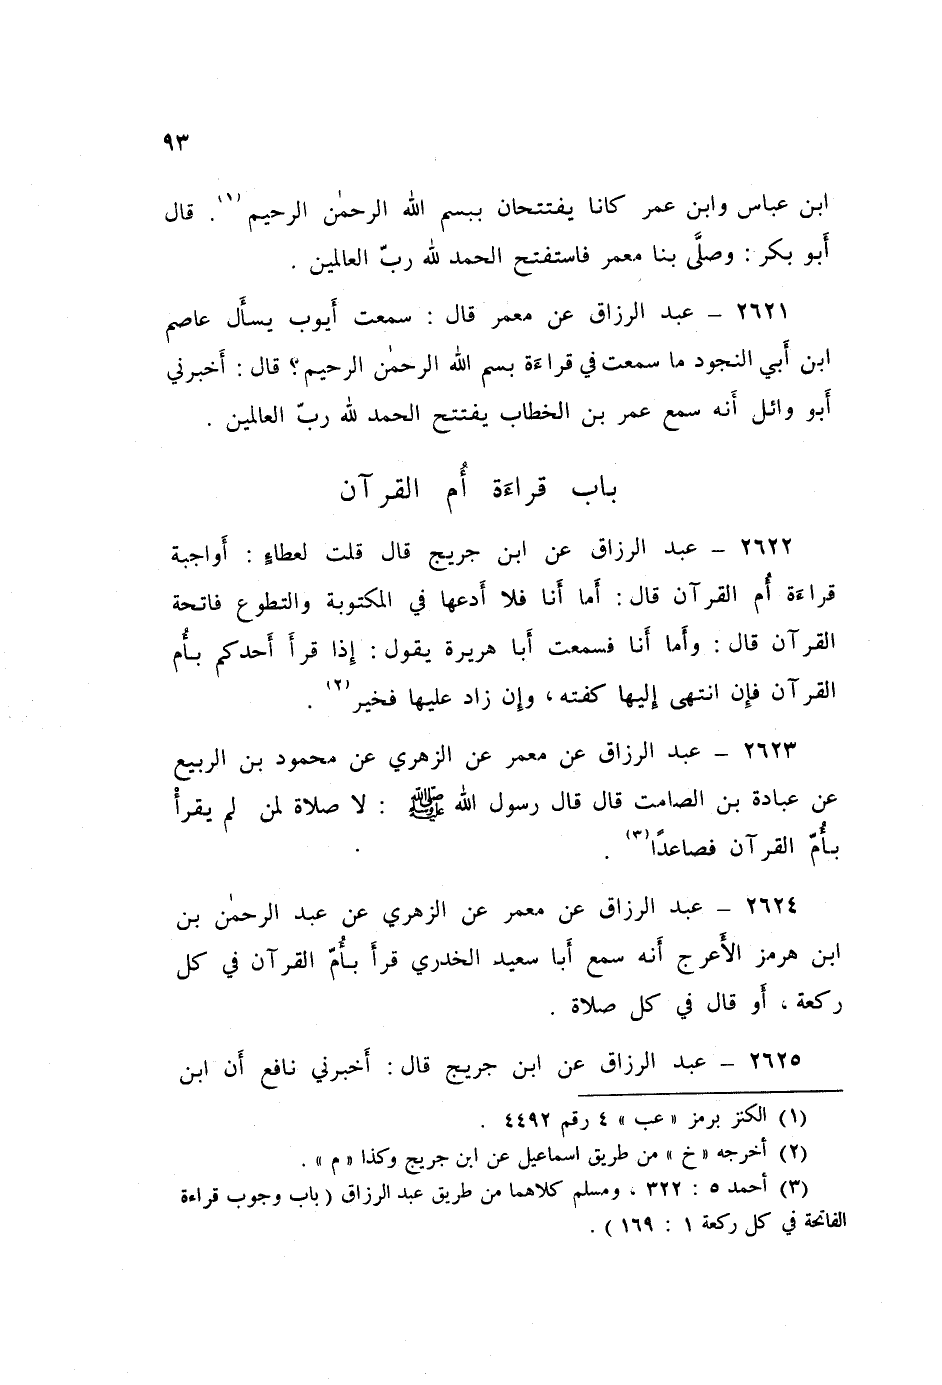 ٩٣
ابن عباس وابن عمر كانا يفتتحان ببسم الله الرحمٰن الرحيم(١). قال
أَبو بكر : وصلَّى بنا معمر فاستفتح الحمد لله ربّ العالمين .
٢٦٢١ – عبد الرزاق عن معمر قال : سمعت أَيوب يسأَل عاصم
ابن أَبي النجود ما سمعت في قراءَة بسم الله الرحمٰن الرحيم؟ قال : أَخبرني
أَبو وائل أَنه سمع عمر بن الخطاب يفتتح الحمد لله ربّ العالمين .
باب قراءَة أُم القرآن
٢٦٢٢ – عبد الرزاق عن ابن جريج قال قلت لعطاءٍ : أَواجبة
قراءَة أُم القرآن قال : أَما أَنا فلا أَدعها في المكتوبة والتطوع فاتحة
القرآن قال : وأَما أَنا فسمعت أَبا هريرة يقول : إِذا قرأَ أَحدكم بأُم
القرآن فإِن انتهى إِليها كفته ، وإِن زاد عليها فخير(٢) .
٢٦٢٣ – عبد الرزاق عن معمر عن الزهري عن محمود بن الربيع
عن عبادة بن الصامت قال قال رسول الله ﷺ : لا صلاة لمن لم يقرأْ
بأُمّ القرآن فصاعدًا(٣) .
٢٦٢٤ – عبد الرزاق عن معمر عن الزهري عن عبد الرحمٰن بن
ابن هرمز الأَعرج أَنه سمع أَبا سعيد الخدري قرأَ بأُمّ القرآن في كل
ركعة ، أَو قال في كل صلاة .
٢٦٢٥ – عبد الرزاق عن ابن جريج قال : أَخبرني نافع أَن ابن
(١) الكنز برمز « عب » ٤ رقم ٤٤٩٢ .
(٢) أخرجه « خ » من طريق اسماعيل عن ابن جريج وكذا « م » .
(٣) أحمد ٥ : ٣٢٢ ، ومسلم كلاهما من طريق عبد الرزاق ( باب وجوب قراءة
الفاتحة في كل ركعة ١ : ١٦٩ ) .